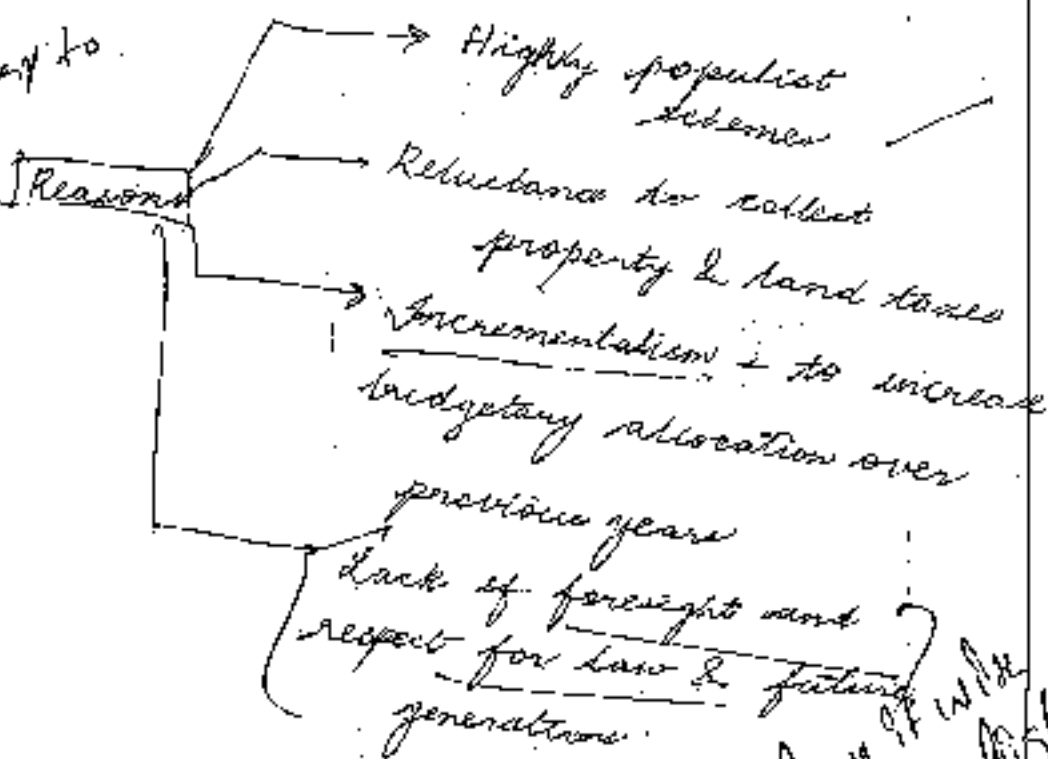 to
Highly populist
schemes
Reasons
Reluctance to collect
property & land taxes
Incrementalism - to increase
budgetary allocation over
previous years
Lack of foresight and
respect for Law & future
generations